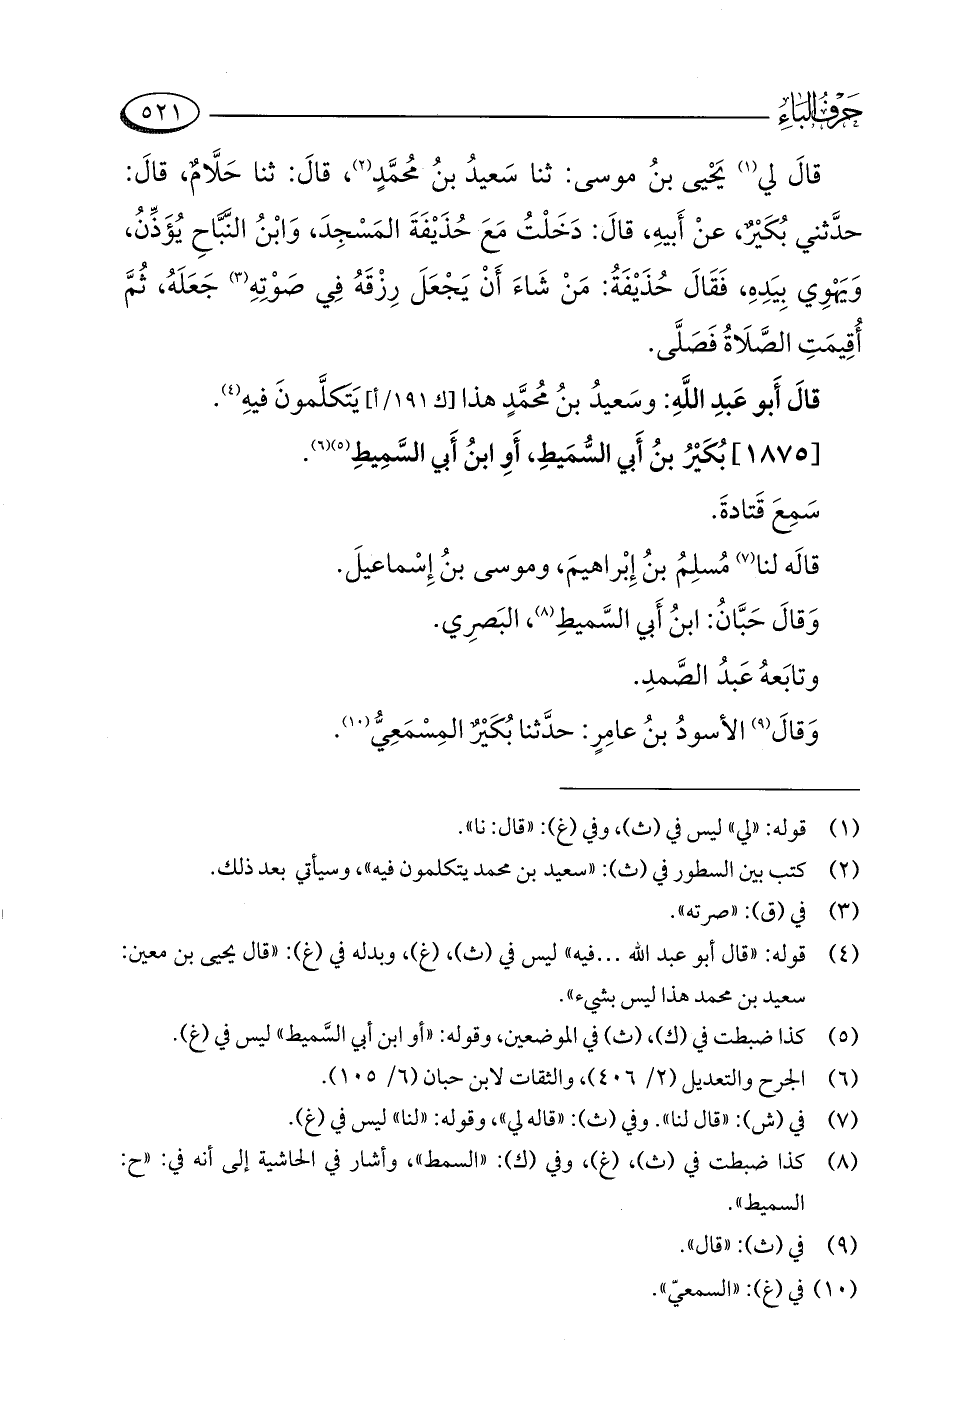 حَرْفُ البَاءِ
٥٢١
قالَ لي(١) يَحْيى بنُ موسى: ثنا سَعيدُ بنُ مُحمَّدٍ(٢)، قالَ: ثنا حَلَّامٌ، قالَ:
حدَّثني بُكَيْرٌ، عنْ أَبيهِ، قالَ: دَخَلْتُ مَعَ حُذَيْفَةَ المَسْجِدَ، وَابْنُ النَّبَّاحِ يُؤَذِّنُ،
وَيَهْوِي بِيَدِهِ، فَقَالَ حُذَيْفَةُ: مَنْ شَاءَ أَنْ يَجْعَلَ رِزْقَهُ فِي صَوْتِهِ(٣) جَعَلَهُ، ثُمَّ
أُقِيمَتِ الصَّلَاةُ فَصَلَّى.
قالَ أَبو عَبدِ اللَّهِ: وسَعيدُ بنُ مُحمَّدٍ هذا [ك ١٩١/ أ] يَتكلَّمونَ فيهِ(٤).
[١٨٧٥] بُكَيْرُ بنُ أَبي السُّمَيطِ، أَوِ ابنُ أَبي السَّمِيطِ(٥)(٦).
سَمِعَ قَتادةَ.
قالَه لنا(٧) مُسلِمُ بنُ إِبْراهيمَ، وموسى بنُ إِسْماعيلَ.
وَقالَ حَبَّانُ: ابنُ أَبي السَّميطِ(٨)، البَصرِي.
وتابَعهُ عَبدُ الصَّمدِ.
وَقالَ(٩) الأسودُ بنُ عامِرٍ: حدَّثنا بُكَيْرٌ المِسْمَعِيُّ(١٠).
(١) قوله: «لي» ليس في (ث)، وفي (غ): «قال: نا».
(٢) كتب بين السطور في (ث): «سعيد بن محمد يتكلمون فيه»، وسيأتي بعد ذلك.
(٣) في (ق): «صرته».
(٤) قوله: «قال أبو عبد الله ...فيه» ليس في (ث)، (غ)، وبدله في (غ): «قال يحيى بن معين:
سعيد بن محمد هذا ليس بشيء».
(٥) كذا ضبطت في (ك)، (ث) في الموضعين، وقوله: «أو ابن أبي السَّميط» ليس في (غ).
(٦) الجرح والتعديل (٢/ ٤٠٦)، والثقات لابن حبان (٦/ ١٠٥).
(٧) في (ش): «قال لنا». وفي (ث): «قاله لي»، وقوله: «لنا» ليس في (غ).
(٨) كذا ضبطت في (ث)، (غ)، وفي (ك): «السمط»، وأشار في الحاشية إلى أنه في: «ح:
السميط».
(٩) في (ث): «قال».
(١٠) في (غ): «السمعيّ».